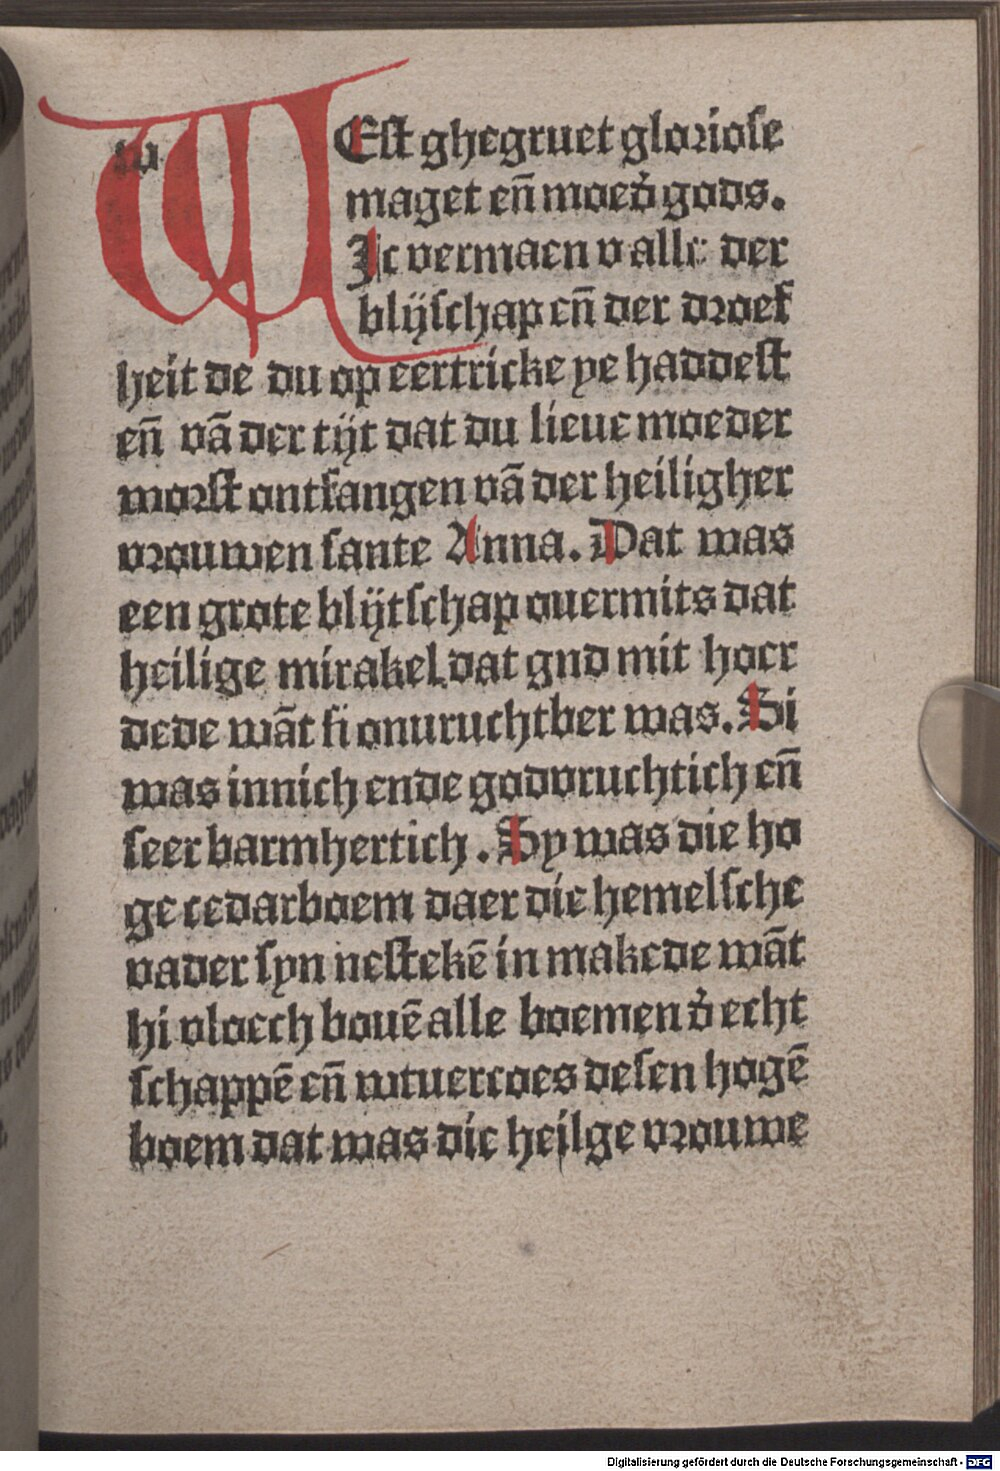 WEst ghegruet gloriose
maget eñ moed̉ gods.
Ic vermaen v alle der
blijschap eñ der droef
heit de du op eertricke ye haddest
eñ vā der tijt dat du lieue moeder
worst ontfangen vā der heiligher
vrouwen sante Anna. Dat was
een grote blijtschap ouermits dat
heilige mirakel dat gnd mit hoer
dede wāt si onuruchtber was. Si
was innich ende godvruchtich eñ
seer barmhertich. Sy was die ho
ge cedarboem daer die hemelsche
vader syn nestekē in makede wāt
hi vloech bouē alle boemen d̉ echt
schappē eñ wtuercoes desen hogē
boem dat was die heilge vrouwe
Digitalisierung gefördert durch die Deutsche Forschungsgemeinschaft - DFG